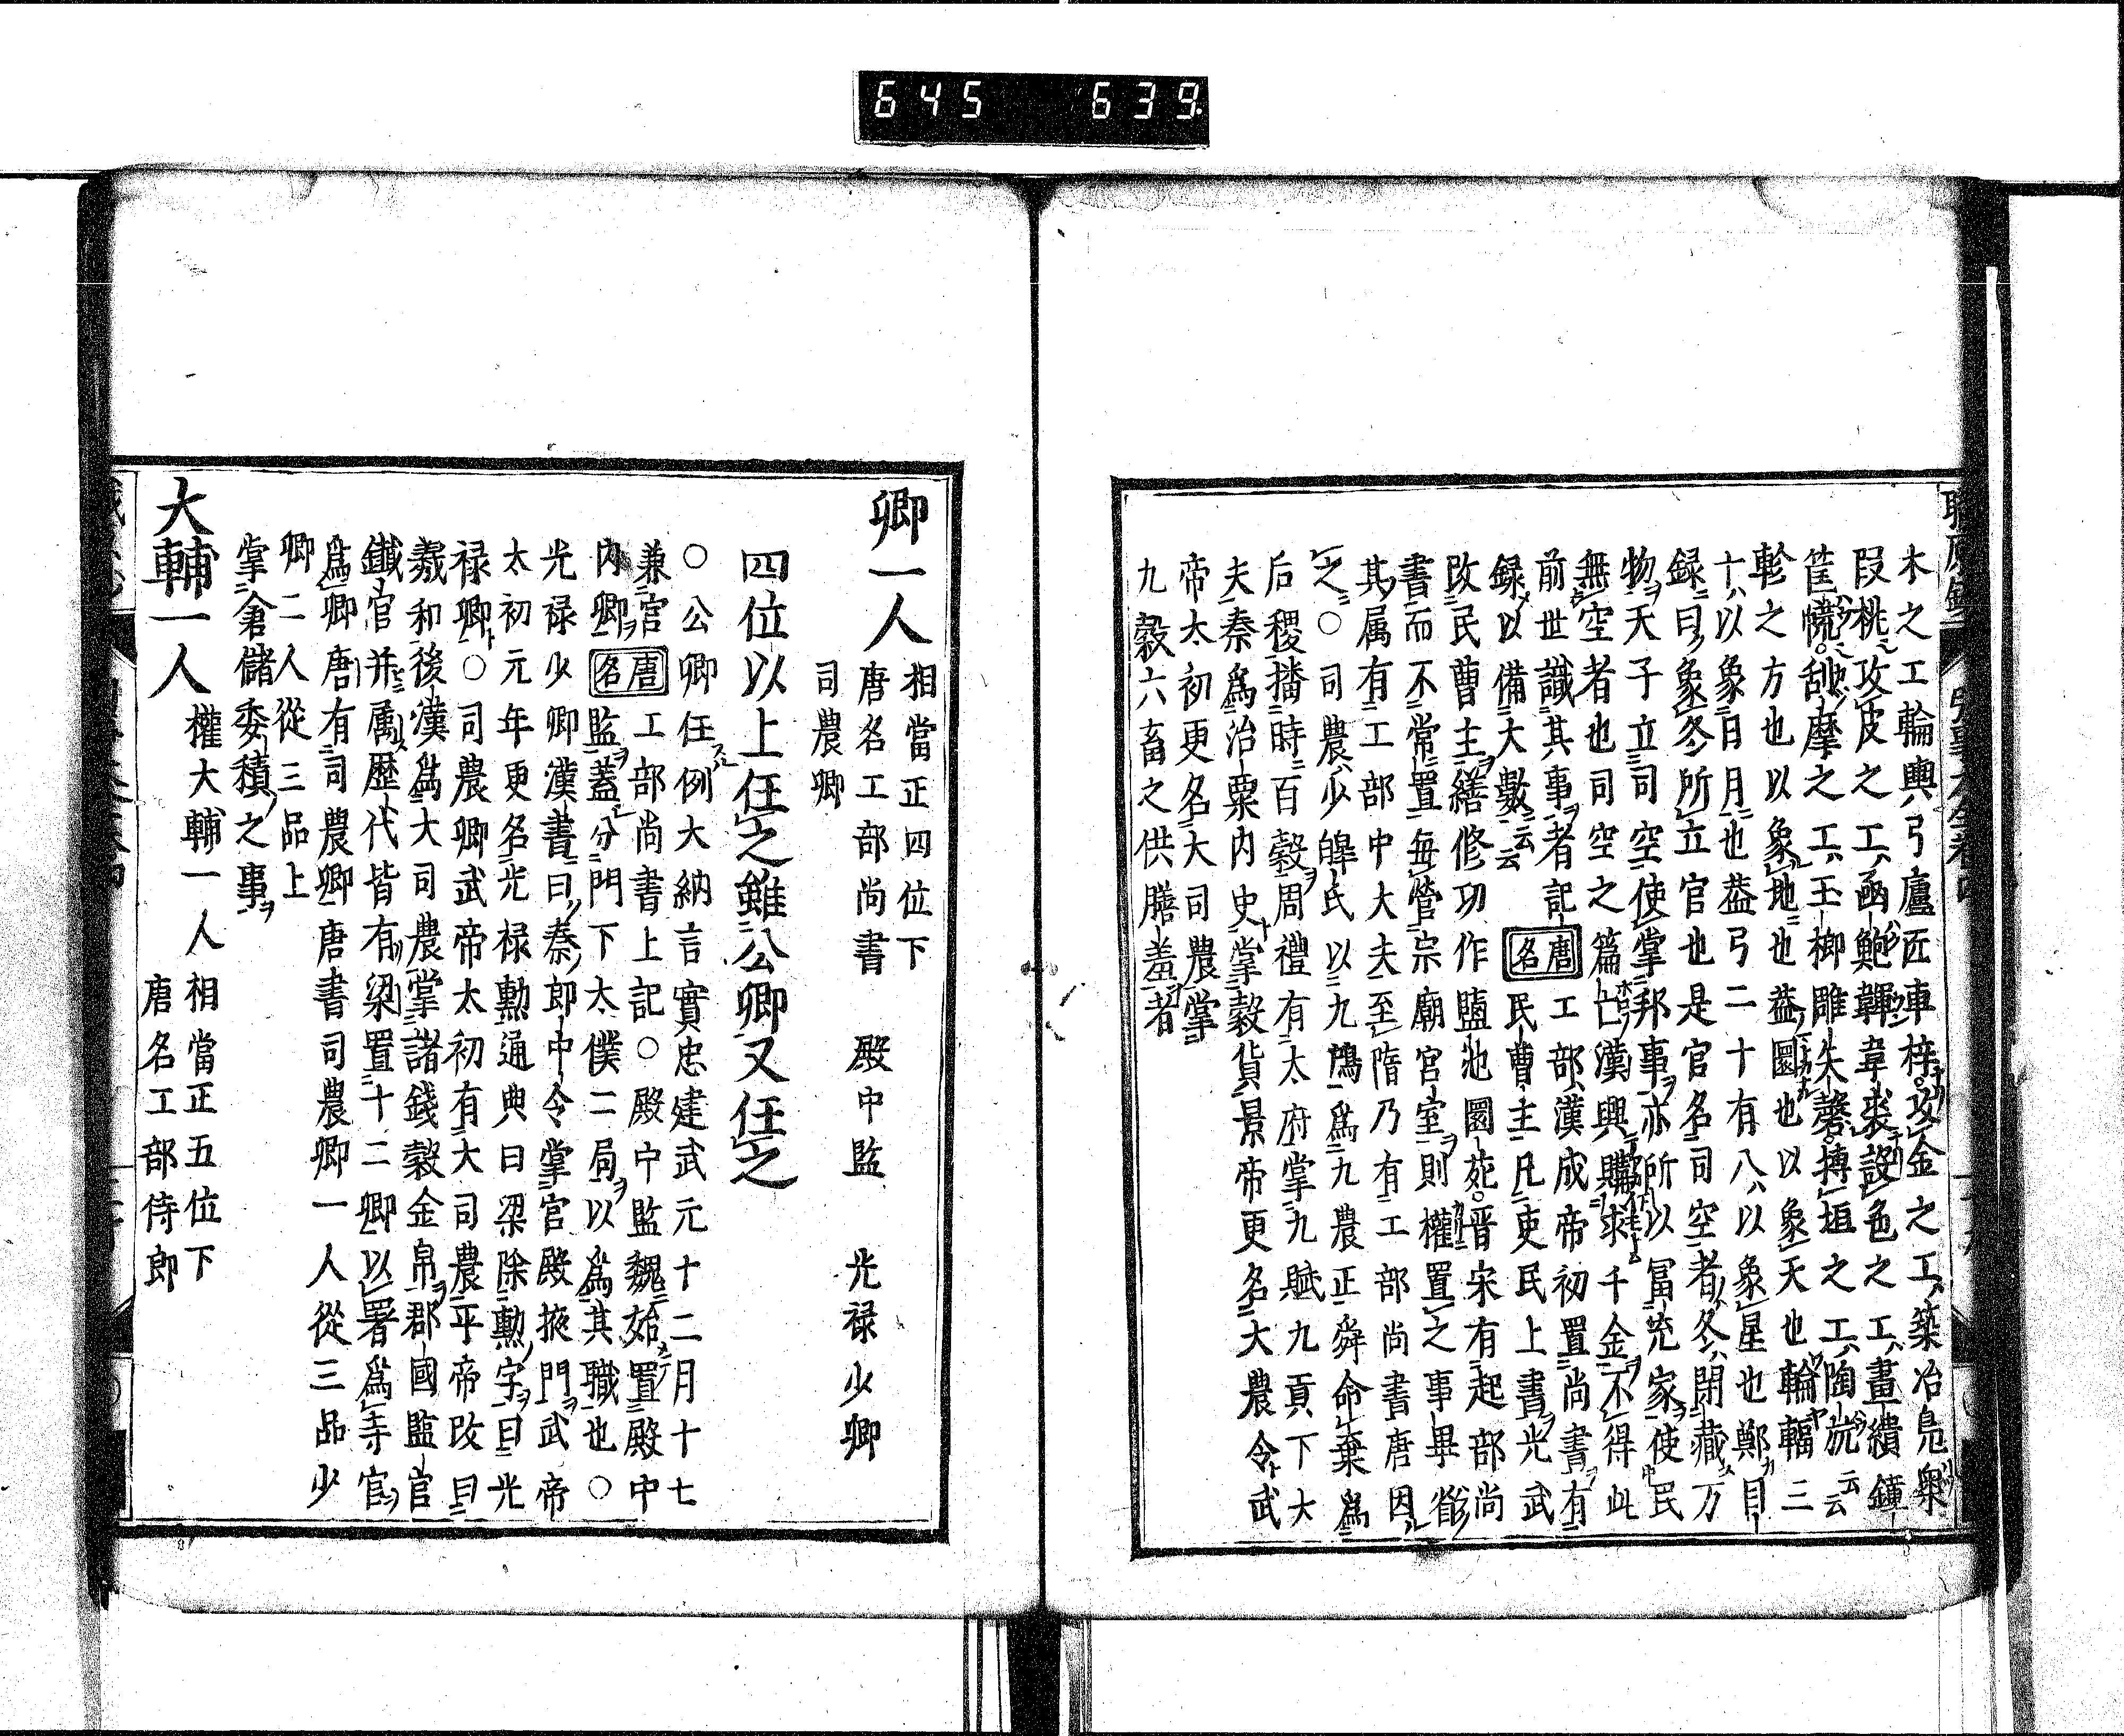 645 639
木之工輪輿弓廬匠車梓攻金之工築冶鳧㮚
段桃攻皮之工函鮑韗韋裘設色之工畫繢鍾
筐㡛刮摩之工玉櫛雕矢磬摶埴之工陶旊云云
軫之方也以象地也蓋圜也以象天也輪輻三
十以象日月也蓋弓二十有八以象星也鄭目
録曰象冬所立官也是官名司空者冬閉藏万
物天子立司空使掌邦事亦所以冨完家使民
無空者也司空之篇亡漢興購求千金不得此
前世識其事者記
録以備大數云云
唐名
工部漢成帝初置尚書有
民曹主凡吏民上書光武
改民曹主繕修功作鹽池園苑晋宋有起部尚
書而不常置毎營宗廟宮室則權置之事畢省
其属有工部中大夫至隋乃有工部尚書唐因
之○司農少皞氏以九鳸爲九農正舜命棄爲
后稷播時百穀周禮有太府掌九賦九貢下大
夫秦爲治粟内史掌穀貨景帝更名大農令武
帝太初更名大司農掌
九穀六畜之供膳羞者
卿一人
相當正四位下
唐名工部尚書 殿中監 光禄少卿
司農卿
四位以上任之雖公卿又任之
○公卿任例大納言實忠建武元十二月十七
兼宮
内卿
唐名
工部尚書上記○殿中監魏始置殿中
監蓋分門下太僕二局以爲其職也○
光禄少卿漢書曰秦郎中令掌官殿掖門武帝
太初元年更名光禄勲通典曰梁除勲字曰光
禄卿○司農卿武帝太初有大司農平帝改曰
羲和後漢爲大司農掌諸錢穀金帛郡國監官
鐵官并属歴代皆有梁置十二卿以署爲寺官
爲卿唐有司農卿唐書司農卿一人從三品少
卿二人從三品上
掌倉儲委積之事
大輔一人
權大輔一人
相當正五位下
唐名工部侍郎